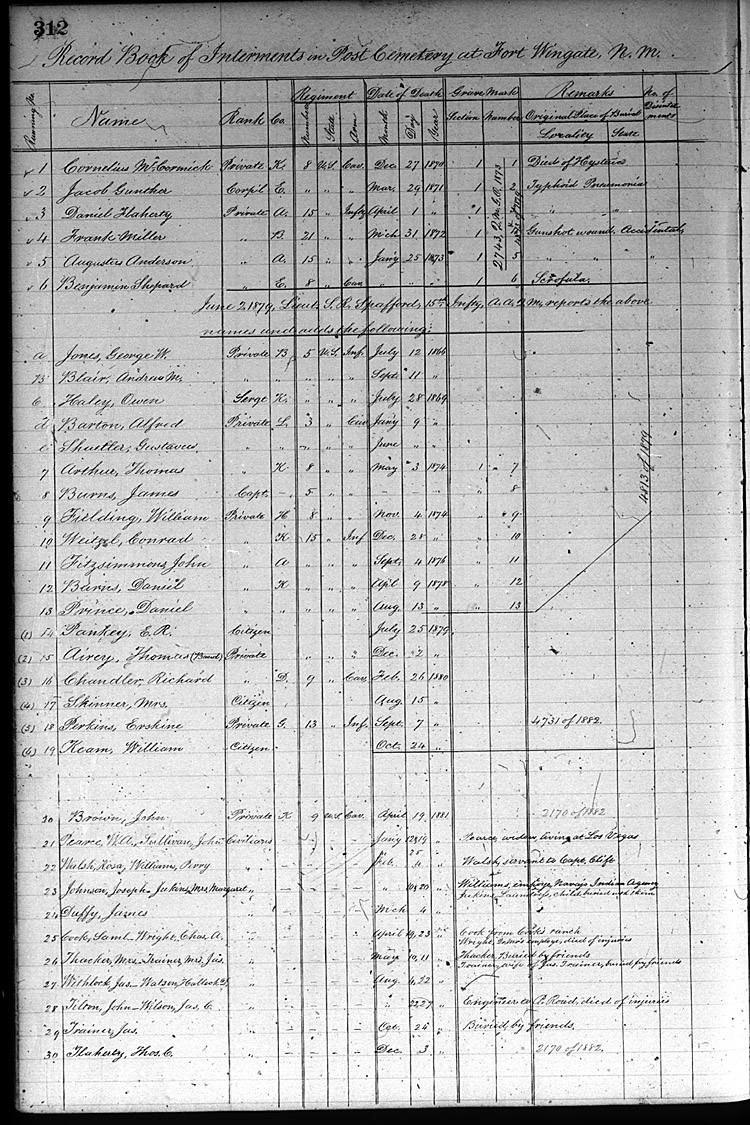 312
Record Book of Interments in Post Cemetery at Fort Wingate, N. M.
Regiment Date of Death Grave Mark Remarks No. of
Name Rank Co. Number State Arm Month Day Year Section Number Original Place of Burial
Locality State
1 Cornelius McCormick Private K. 8 U.S. Cav. Dec. 27 1870 1 1 Died of Hysteria
2 Jacob Gunther Corp'l E. " " " Mar. 29 1871 1 2 Typhoid Pneumonia
3 Daniel Flaherty Private A. 15 " Infty April 1 " 1 " "
4 Frank Miller " B. 21 " " Mch 31 1872 1 Gunshot wound, Accidental,
5 Augusters Anderson " A. 15 " " Jany 25 1873 1 5 " " "
6 Benjamin Shepard " E. 8 " Cav. 1 6 Scrofula.
2743, Q.M.G.O. 1873
June 2, 1879, Lieut. S. R. Stafford, 15th Infty, A.A.Q.M. reports the above
names and adds the following:
a Jones, George W. Private B 5 U.S. Inf. July 12 1866
B Blair, Andrew M. " " " " " Sept. 11 "
C Haley, Owen Serge K. " " " July 28 1869
d Barton, Alfred Private L. 3 " Cav Jany 9 "
e Shutler, Gustaves " " " " " June " "
7 Arthur, Thomas " K 8 " " May 3 1874 1 " 7
8 Burns, James Capt. - 5 " " - - - " 8
9 Fielding, William Private H 8 " " Nov. 4 1874 " 9
10 Weitzel, Conrad " K 15 " Inf Dec. 28 " " 10
11 Fitzsimmons, John " A " " " Sept. 4 1876 " 11
12 Burns, Daniel " K " " " Apl 9 1878 " 12
13 Prince, Daniel " " " " " Aug. 13 " " 13
4813 of 1879
(1) 14 Pankey, E. R. Citizen July 25 1879
(2) 15 Airey, Thomas (Band) Private " " " Dec. 2 "
(3) 16 Chandler, Richard " D. 9 " Cav. Feb. 26 1880
(4) 17 Skinner, Mrs. Citizen Aug. 15 "
(5) 18 Perkins, Erskine Private G. 13 " Inf. Sept. 7 " 4731 of 1882.
(6) 19 Keam, William Citizen Oct. 24 "
20 Brown, John Private K 9 U.S. Cav. April 19 1881 2170 of 1882
21 Pearce, W.A., Sullivan, John Civilians Jany " Pearce, widow living at Las Vegas
22 Walsh, Rosa, Williams, Perry " - - - - Feb. " Walsh, servant to Capt. Clift
23 Johnson, Joseph - Jenkins, Mrs. Margaret " - - - - " 20 " Williams, employe, Navajo Indian Agency
Jenkins, child buried with them
24 Duffy, James " - - - - Mch 4 "
25 Cook, Saml - Wright, Chas. A. " - - - - April 19, 23 " Cook from Cook's ranch
Wright, employe, died of injuries
26 Thacker, Mrs. Trainer, Mrs. Jas. " - - - - May 10, 11 " Thacker Buried by friends
Trainer, wife of Jas. Trainer, buried by friends
27 Withlock, Jas - Watson, " - - - - Aug 4, 22 "
28 Tilton, John - Wilson, Jas. C. " - - - - " 22, 27 " Engineer A.P. Road, died of injuries
29 Trainer, Jas. " - - - - Oct. 24 " Buried by friends,
30 Flaherty, Thos. C. " - - - - Dec. 3 " 2170 of 1882.